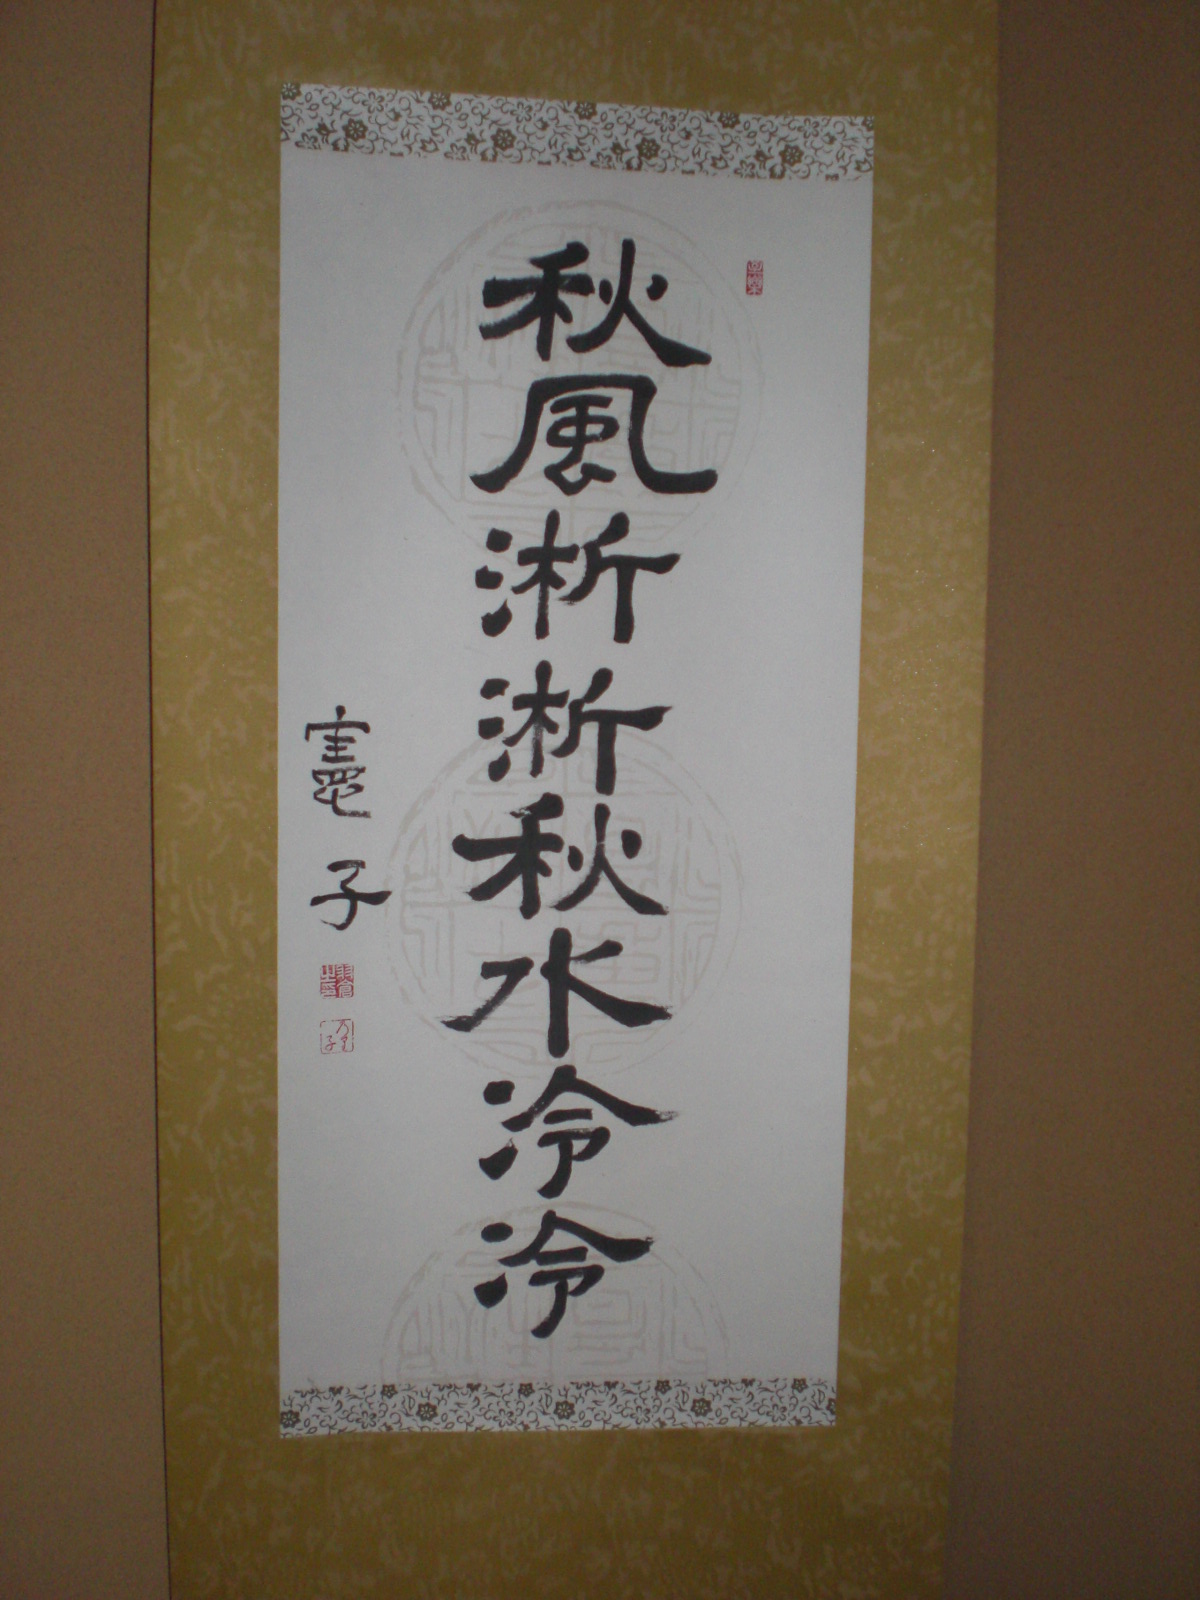 秋風淅淅秋水冷冷
憲子